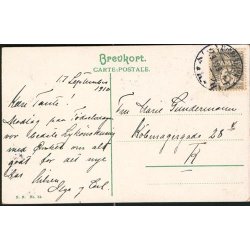 Brevkort.
CARTE-POSTALE.
17 September
1910
Kære Tante!
Modtag paa Fødselsdagen
vor bedste Lykønskning
med Ønsket om alt
godt for det nye
Aar
Hilsen
Aage og Carl
Frk Marie Gundermann
Købmagergade 28
K